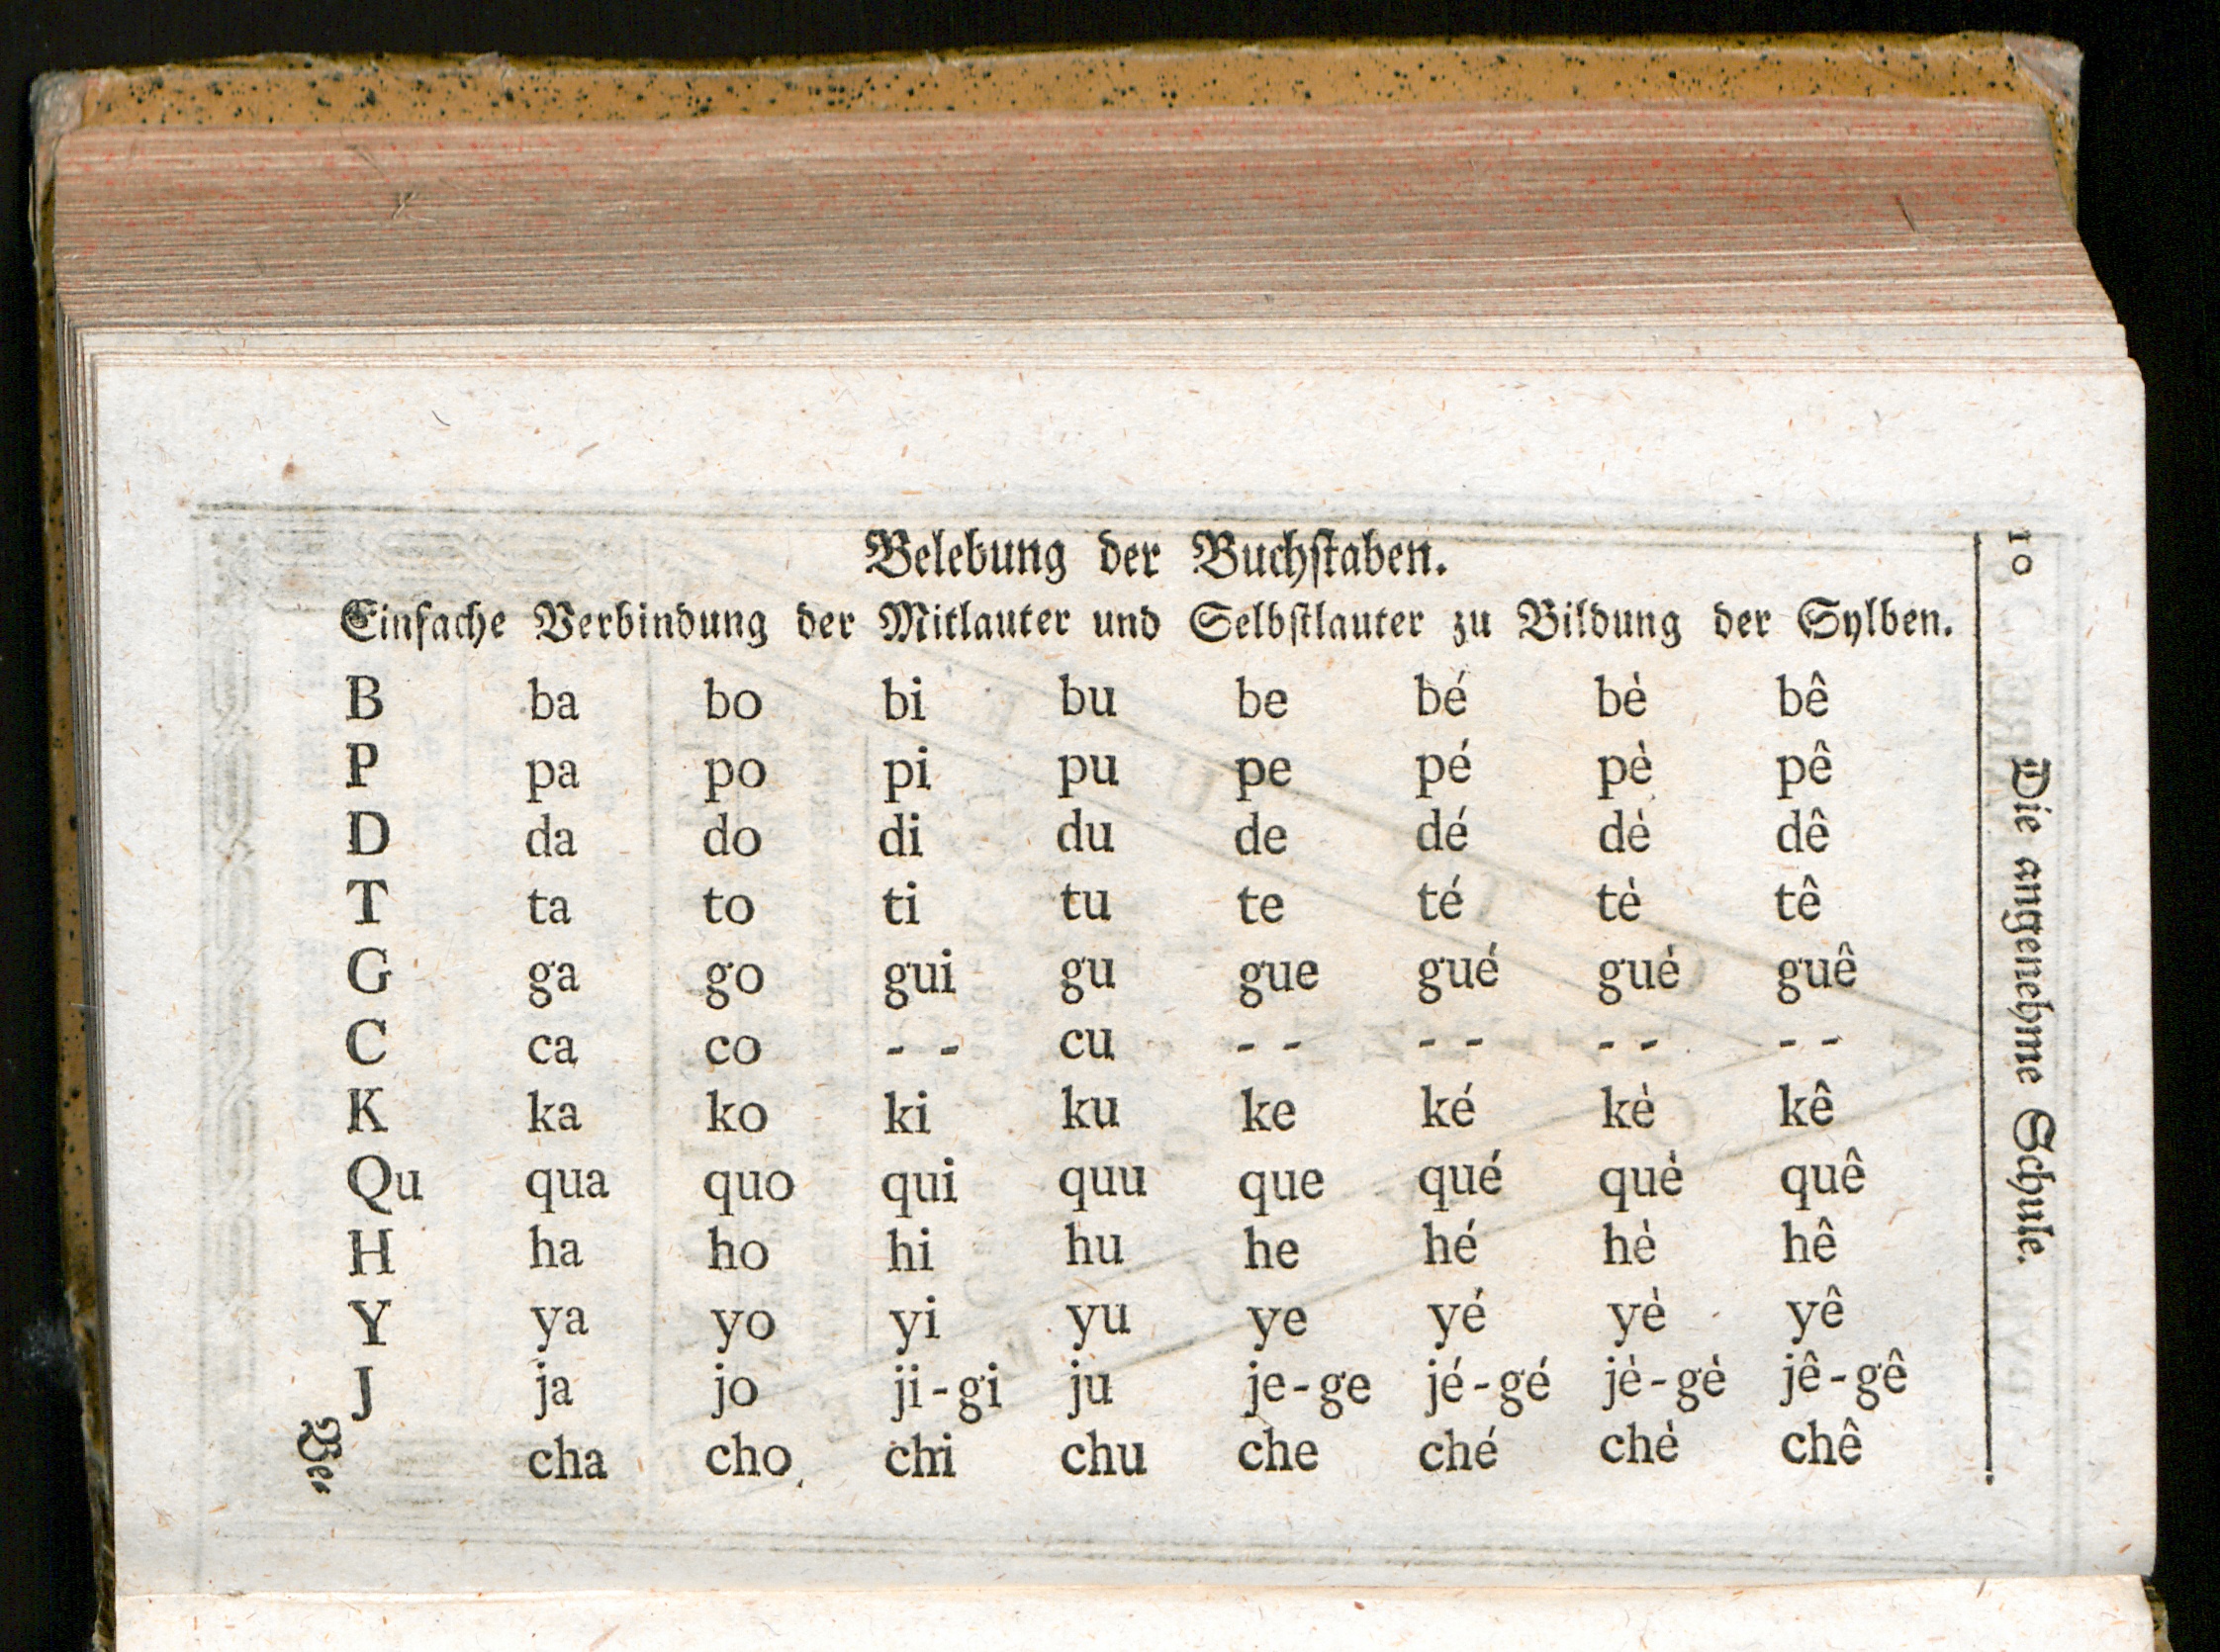 10 Die angenehme Schule.
Belebung der Buchstaben.
Einfache Verbindung der Mitlauter und Selbstlauter zu Bildung der Sylben.
B ba bo bi bu be bé bè bê
P pa po pi pu pe pé pè pê
D da do di du de dé dè dê
T ta to ti tu te té tè tê
G ga go gui gu gue gué guè guê
C ca co - - cu - - - - - - - -
K ka ko ki ku ke ké kè kê
Qu qua quo qui quu que qué què quê
H ha ho hi hu he hé hè hê
Y ya yo yi yu ye yé yè yê
J ja jo ji-gi ju je-ge jé-gé jè-gè jê-gê
cha cho chi chu che ché chè chê
Be=